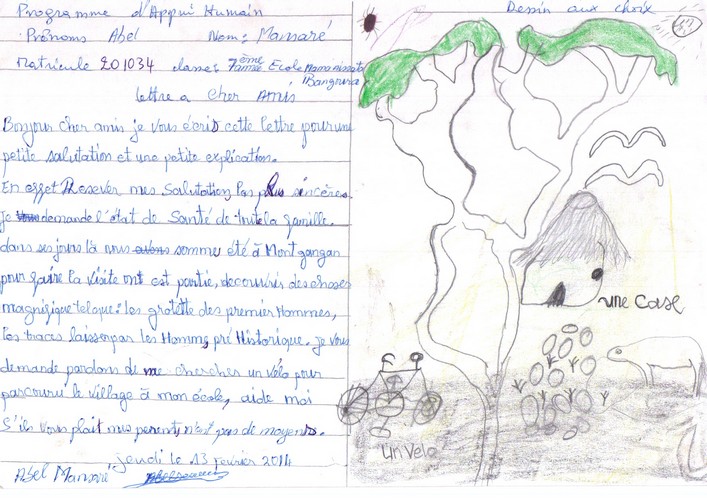 Programme d'Appui Humain
Prénoms Abel Nom: Mansaré
Matricule 201034 classe: 7ème année Ecole Mamaissata
Bangoura
lettre a cher Amis
Bonjour cher amis je vous écris cette lettre pour une
petite salutation et une petite explication.
En effet Resever mes Salutation las plus sincères.
Je demande l'état de Santé de toute la famille.
dans ses jours là nous sommes été à Mont gangan
pour faire la visite ont est partie, decouvris des choses
magnifique telque: les grotette des premier Hommes,
les traces laisser par les Homms pré Historique. je vous
demande pardons de me cherches un vélo pour
parcouru le village à mon école, aide moi
S'ils vous plait mes parents n'ont pas de moyens.
jeudi le 13 Fevrier 2014
Abel Mansaré
Dessin aux choix
une Case
Un Velo